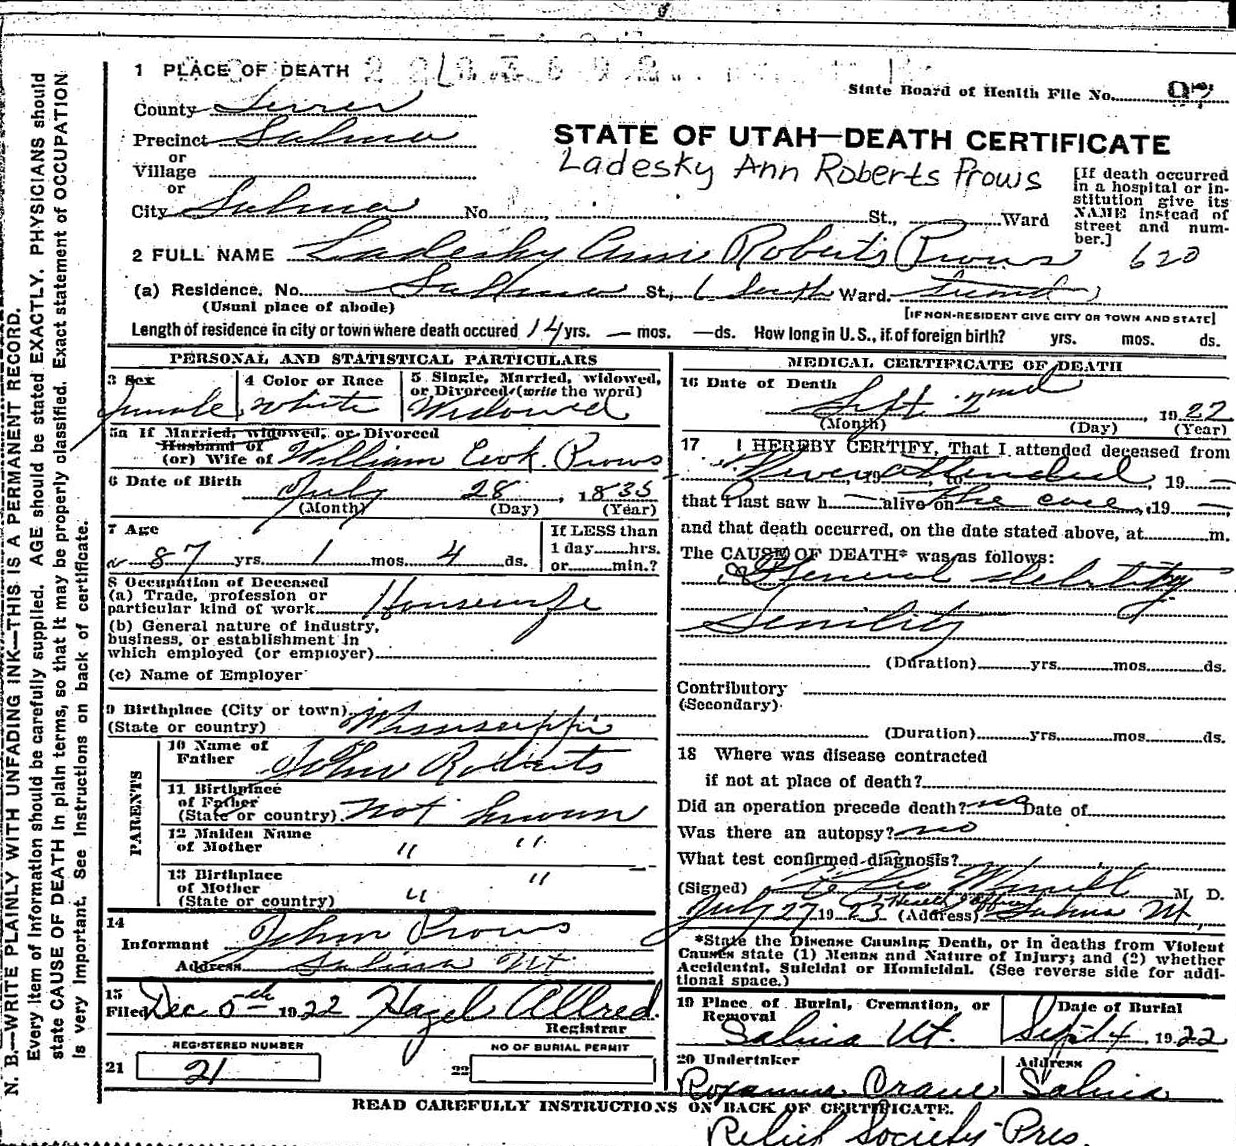 1 PLACE OF DEATH
State Board of Health File No.
County Sevier
Precinct Salina
STATE OF UTAH—DEATH CERTIFICATE
or
Village
Ladesky Ann Roberts Prows
or
City Salina No. St., Ward
[If death occurred in a hospital or institution give its NAME instead of street and number.]
620
2 FULL NAME Ladesky Ann Roberts Prows
(a) Residence. No. Salina St., South Ward.
(Usual place of abode)
[IF NON-RESIDENT GIVE CITY OR TOWN AND STATE]
Length of residence in city or town where death occured 14 yrs. — mos. — ds. How long in U.S., if of foreign birth? yrs. mos. ds.
PERSONAL AND STATISTICAL PARTICULARS
3 Sex
Female
4 Color or Race
White
5 Single, Married, widowed, or Divorced (write the word)
Widowed
5a If Married, widowed, or Divorced
Husband of
(or) Wife of William Cook Prows
6 Date of Birth July 28, 1835
(Month) (Day) (Year)
7 Age
87 yrs. 1 mos. 4 ds.
If LESS than
1 day......hrs.
or......min.?
8 Occupation of Deceased
(a) Trade, profession or
particular kind of work Housewife
(b) General nature of industry,
business, or establishment in
which employed (or employer)
(c) Name of Employer
9 Birthplace (City or town)
(State or country) Mississippi
PARENTS
10 Name of
Father John Roberts
11 Birthplace
of Father
(State or country) Not known
12 Maiden Name
of Mother " "
13 Birthplace
of Mother
(State or country) " "
14
Informant John Prows
Address Salina Ut
15
Filed Dec 5th 1922 Hazel Allred
Registrar
REGISTERED NUMBER
21 21
NO OF BURIAL PERMIT
22
MEDICAL CERTIFICATE OF DEATH
16 Date of Death
Sept 2nd 1922
(Month) (Day) (Year)
17 I HEREBY CERTIFY, That I attended deceased from
Never attended, 19 —
that I last saw h — alive on the case, 19 —
and that death occurred, on the date stated above, at m.
The CAUSE OF DEATH* was as follows:
General debility
Senility
(Duration) yrs. mos. ds.
Contributory
(Secondary)
(Duration) yrs. mos. ds.
18 Where was disease contracted
if not at place of death?
Did an operation precede death? no Date of
Was there an autopsy? no
What test confirmed diagnosis?
(Signed) M. D.
July 27 1923 (Address) Salina Ut
*State the Disease Causing Death, or in deaths from Violent
Causes state (1) Means and Nature of Injury; and (2) whether
Accidental, Suicidal or Homicidal. (See reverse side for additional space.)
19 Place of Burial, Cremation, or
Removal
Salina Ut.
Date of Burial
Sept 4 1922
20 Undertaker
Roxanna Crane
Address
Salina
READ CAREFULLY INSTRUCTIONS ON BACK OF CERTIFICATE.
Relief Society Pres.
N. B.—WRITE PLAINLY WITH UNFADING INK—THIS IS A PERMANENT RECORD.
Every item of information should be carefully supplied. AGE should be stated EXACTLY. PHYSICIANS should
state CAUSE OF DEATH in plain terms, so that it may be properly classified. Exact statement of OCCUPATION
is very important. See Instructions on back of certificate.